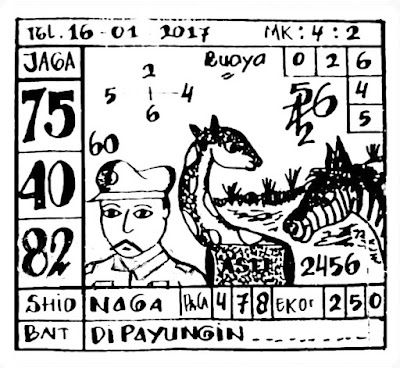 TGL. 16-01-2017 MK: 4 : 2
JAGA Buaya 0 2 6
2
5 4
6
4
5
75
60
40
82
ASLI
2456
SHIO NAGA PALA 4 7 8 EKOR 2 5 0
BNT DIPAYUNGIN